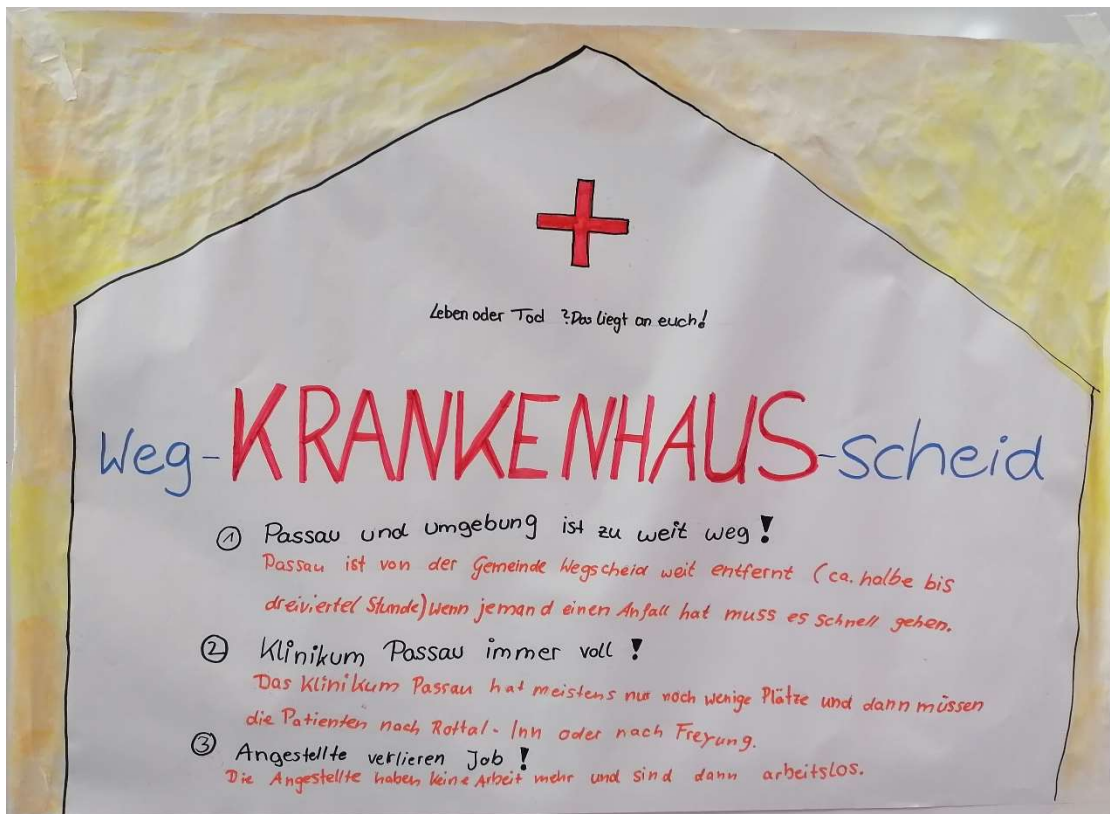 Leben oder Tod ? Das liegt an euch!
Weg-KRANKENHAUS-scheid
① Passau und umgebung ist zu weit weg!
Passau ist von der Gemeinde Wegscheid weit entfernt (ca. halbe bis
dreiviertel Stunde) wenn jemand einen Anfall hat muss es schnell gehen.
② Klinikum Passau immer voll!
Das Klinikum Passau hat meistens nur noch wenige Plätze und dann müssen
die Patienten nach Rottal-Inn oder nach Freyung.
③ Angestellte verlieren Job!
Die Angestellte haben keine Arbeit mehr und sind dann arbeitslos.